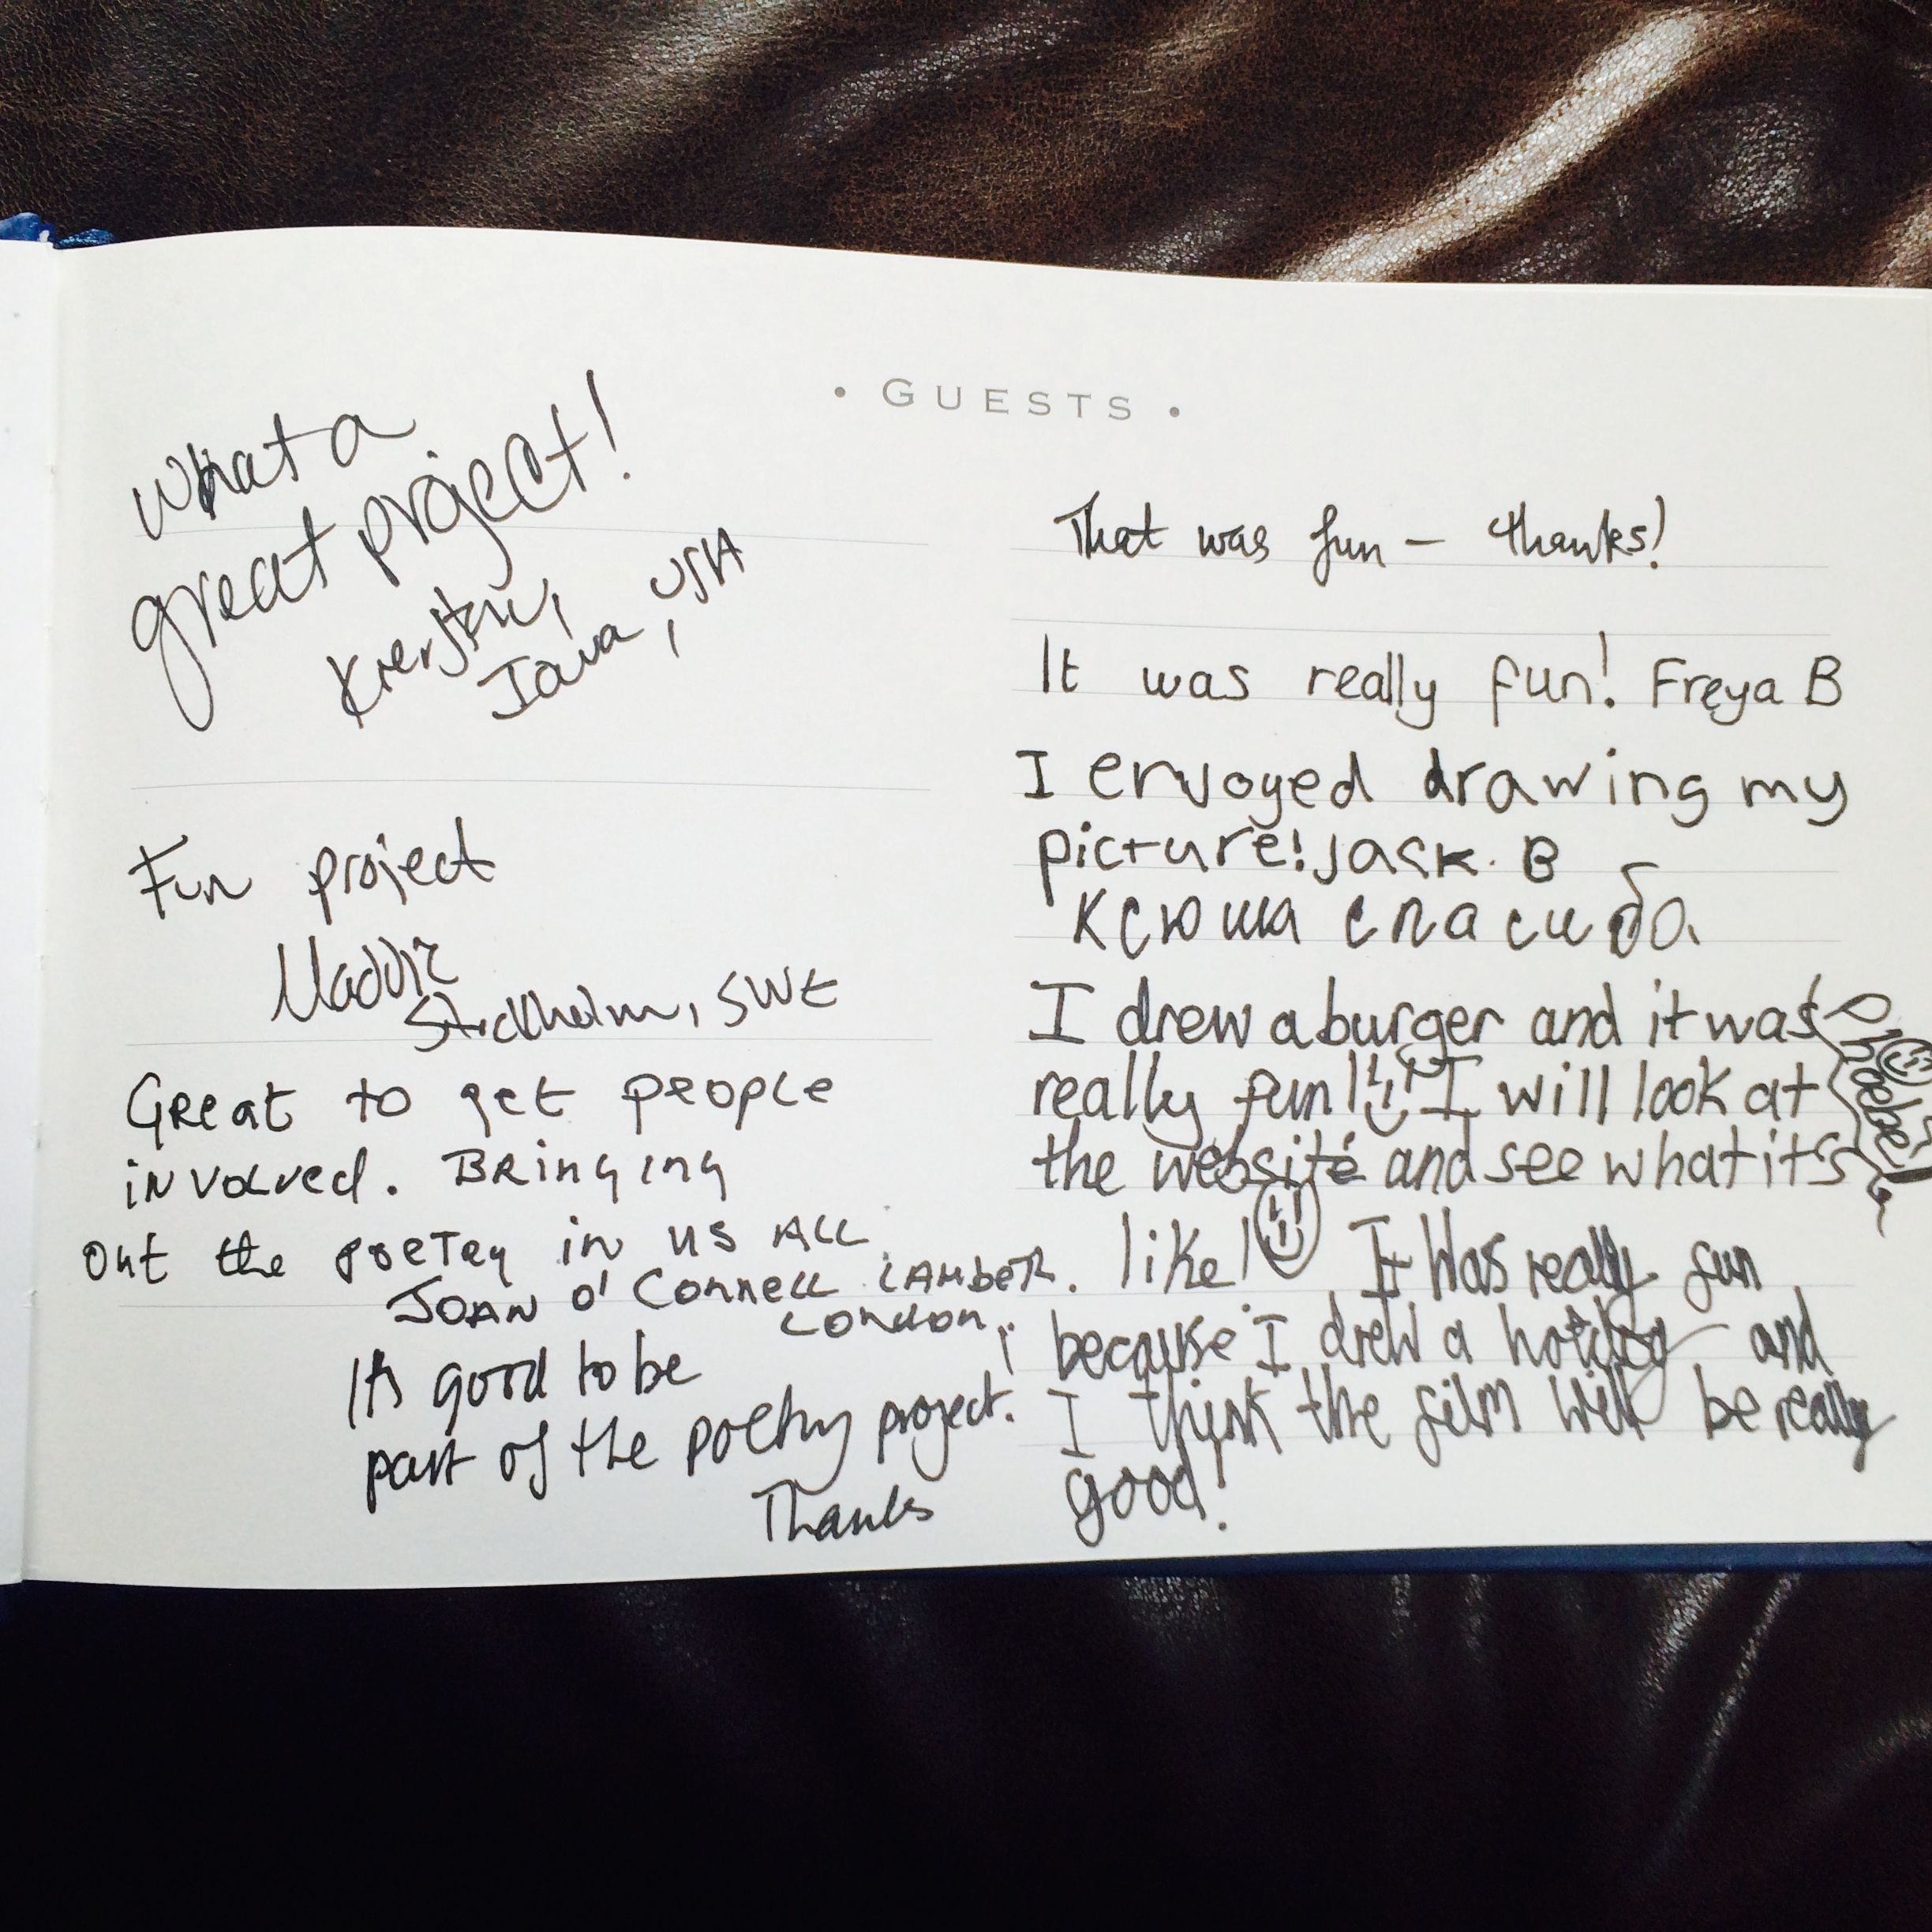 • GUESTS •
What a
great project!
Iowa, USA
Fun project
Stockholm, SWE
Great to get people
involved. Bringing
out the poetry in us all
Joan O'Connell
London.
It's good to be
part of the poetry project.
Thanks
That was fun – thanks!
It was really fun! Freya B
I enjoyed drawing my
picture! Jack. B
Ксюша спасибо.
I drew a burger and it was
really fun!! I will look at
the website and see what it's
like!
Phoebe
It was really fun
because I drew a hotdog and
I think the film will be really
good!